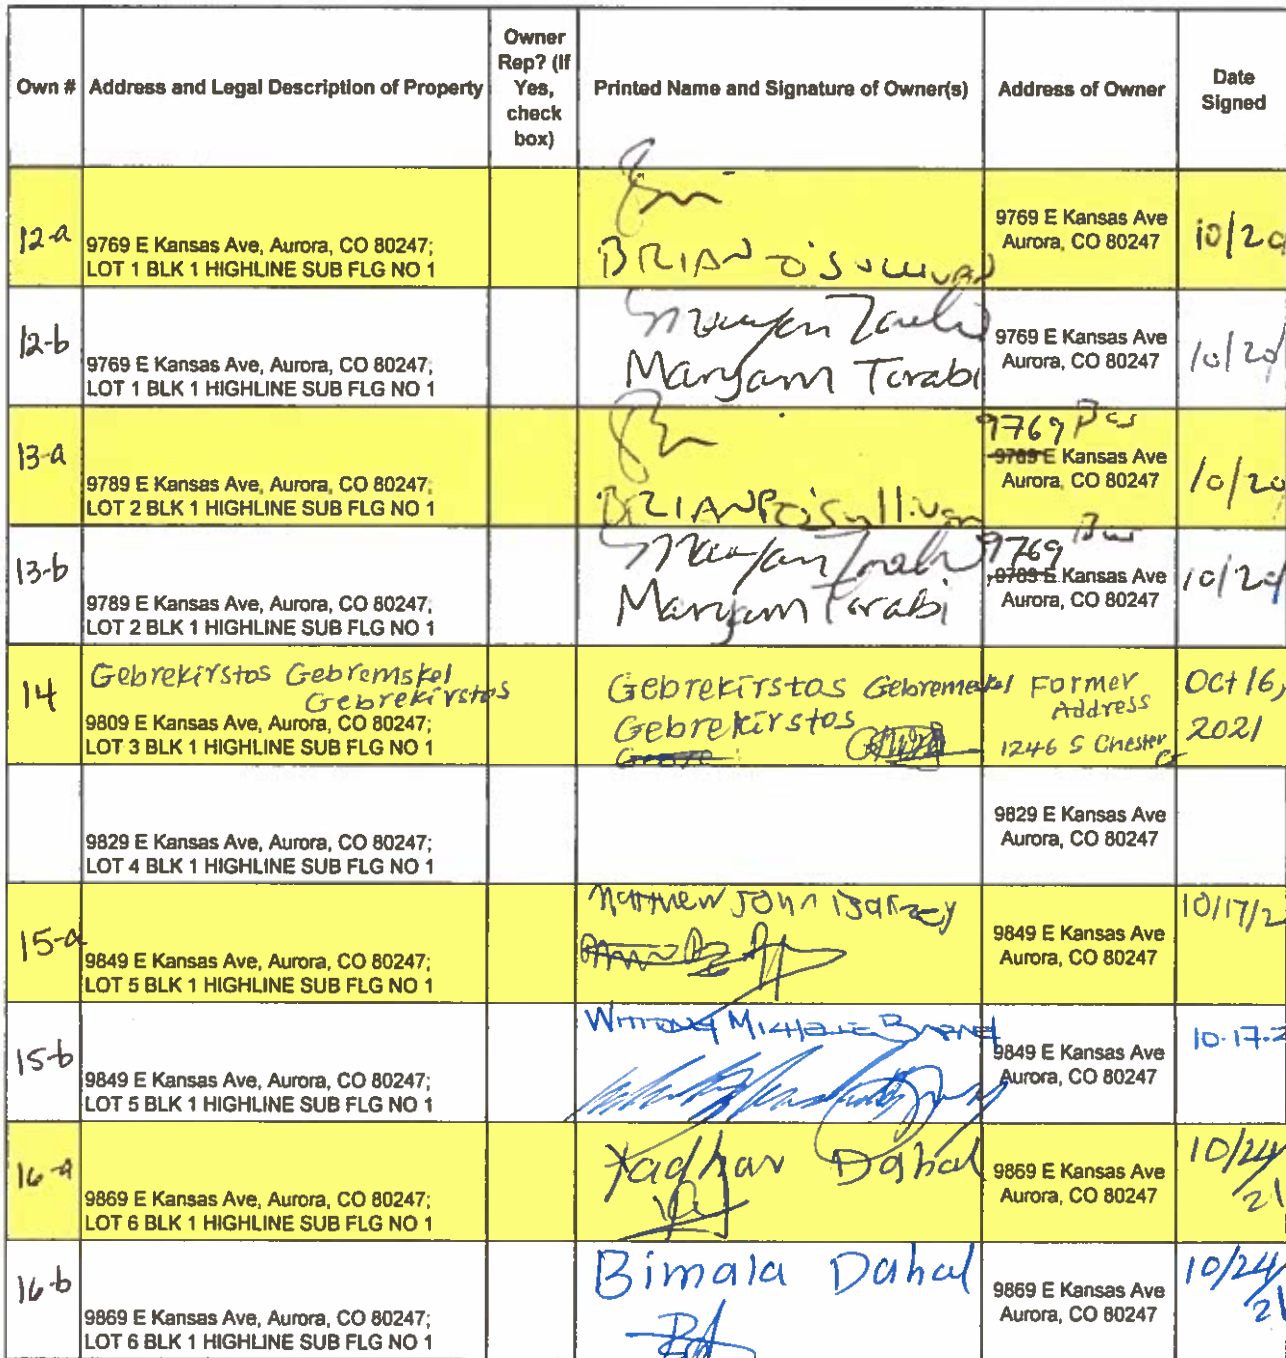 Own #
Address and Legal Description of Property
Owner
Rep? (If
Yes,
check
box)
Printed Name and Signature of Owner(s)
Address of Owner
Date
Signed
12-a
9769 E Kansas Ave, Aurora, CO 80247;
LOT 1 BLK 1 HIGHLINE SUB FLG NO 1
BRIAN O'SULLIVAN
9769 E Kansas Ave
Aurora, CO 80247
10/20
12-b
9769 E Kansas Ave, Aurora, CO 80247;
LOT 1 BLK 1 HIGHLINE SUB FLG NO 1
Maryam Torabi
Maryam Torabi
9769 E Kansas Ave
Aurora, CO 80247
10/20/
13-a
9789 E Kansas Ave, Aurora, CO 80247;
LOT 2 BLK 1 HIGHLINE SUB FLG NO 1
BRIAN P O'Sullivan
9769
9789 E Kansas Ave
Aurora, CO 80247
10/20
13-b
9789 E Kansas Ave, Aurora, CO 80247;
LOT 2 BLK 1 HIGHLINE SUB FLG NO 1
Maryam Torabi
Maryam Torabi
9769
9789 E Kansas Ave
Aurora, CO 80247
10/20/
14
Gebrekirstos Gebremskel
Gebrekirstos
9809 E Kansas Ave, Aurora, CO 80247;
LOT 3 BLK 1 HIGHLINE SUB FLG NO 1
Gebrekirstos Gebremeskel
Gebrekirstos
Former
Address
1246 S Chester
Oct 16,
2021
9829 E Kansas Ave, Aurora, CO 80247;
LOT 4 BLK 1 HIGHLINE SUB FLG NO 1
9829 E Kansas Ave
Aurora, CO 80247
15-a
9849 E Kansas Ave, Aurora, CO 80247;
LOT 5 BLK 1 HIGHLINE SUB FLG NO 1
Matthew John Barney
9849 E Kansas Ave
Aurora, CO 80247
10/17/2
15-b
9849 E Kansas Ave, Aurora, CO 80247;
LOT 5 BLK 1 HIGHLINE SUB FLG NO 1
WHITNEY MICHELLE BARNEY
9849 E Kansas Ave
Aurora, CO 80247
10-17-2
16-a
9869 E Kansas Ave, Aurora, CO 80247;
LOT 6 BLK 1 HIGHLINE SUB FLG NO 1
Yadhav Dahal
9869 E Kansas Ave
Aurora, CO 80247
10/24/
21
16-b
9869 E Kansas Ave, Aurora, CO 80247;
LOT 6 BLK 1 HIGHLINE SUB FLG NO 1
Bimala Dahal
9869 E Kansas Ave
Aurora, CO 80247
10/24/
21